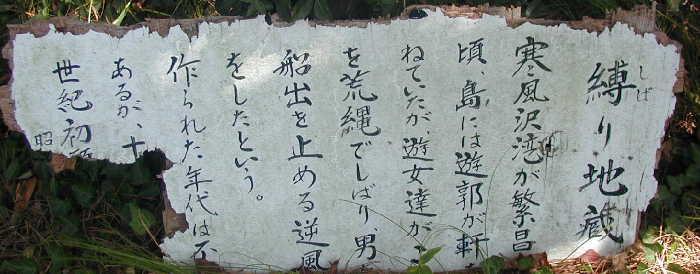 縛り地蔵
しば
寒風沢湾が繁昌
頃、島には遊郭が軒
ねていたが、遊女達が
を荒縄でしばり、男
船出を止める逆風
をしたという。
作られた年代は不
あるが、十
世紀初
昭